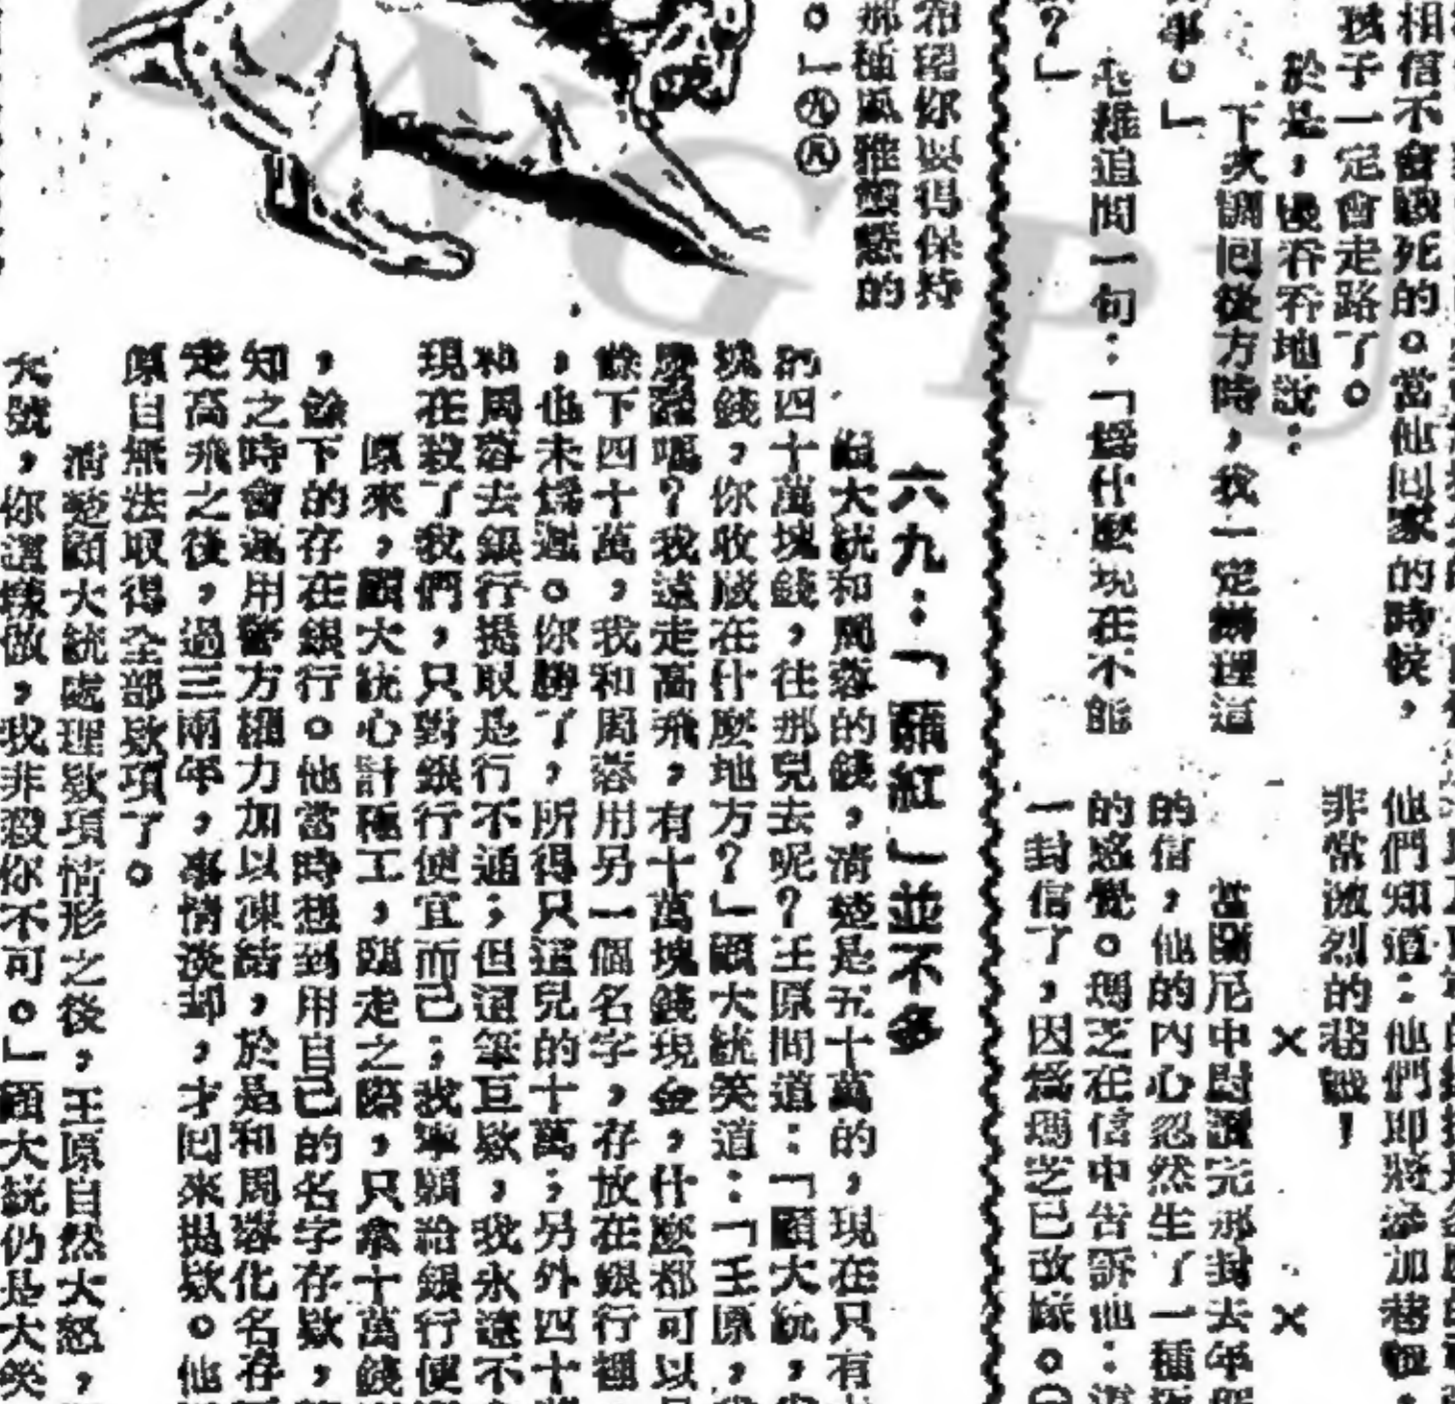 相信不會戰死的。當他回家的時候,
孩子一定會走路了。
於是,慢吞吞地說:
下次調囘後方時,我一定辦理這
事。」
追問一句:「爲什麼現在不能
?」
他們知道:他們即將參加巷戰,
非常激烈的巷戰!
× ×
當關尼中尉讀完那封去年
的信,他的內心忽然生了一種
的感覺。瑪芝在信中告訴他:這
一封信了,因爲瑪芝已改嫁。
你以得保持
那種風雅的
。」
六九:「蘇紅」並不多
顧大統和周蓉的錢,清楚是五十萬的,現在只有
的四十萬塊錢,往那兒去呢?王原問道:「顧大統,
塊錢,你收藏在什麼地方?」顧大統笑道:「王原,
嗎?我遠走高飛,有十萬塊錢現金,什麼都可以
餘下四十萬,我和周蓉用另一個名字,存放在銀行裡
,也未爲遲。你勝了,所得只這兒的十萬;另外四十
和周蓉去銀行提取是行不通;但這筆巨欵,我永遠不
現在殺了我們,只對銀行便宜而已;我寧願給銀行便
原來,顧大統心計極工,臨走之際,只拿十萬錢
,餘下的存在銀行。他當時想到用自己的名字存欵,
知之時會運用警方權力加以凍結,於是和周蓉化名存
走高飛之後,過三兩年,事情淡却,才囘來提欵。他
原自無法取得全部欵項了。
清楚顧大統處理欵項情形之後,王原自然大怒,
大號,你這樣做,我非殺你不可。」顧大統仍是大笑
UNG PU